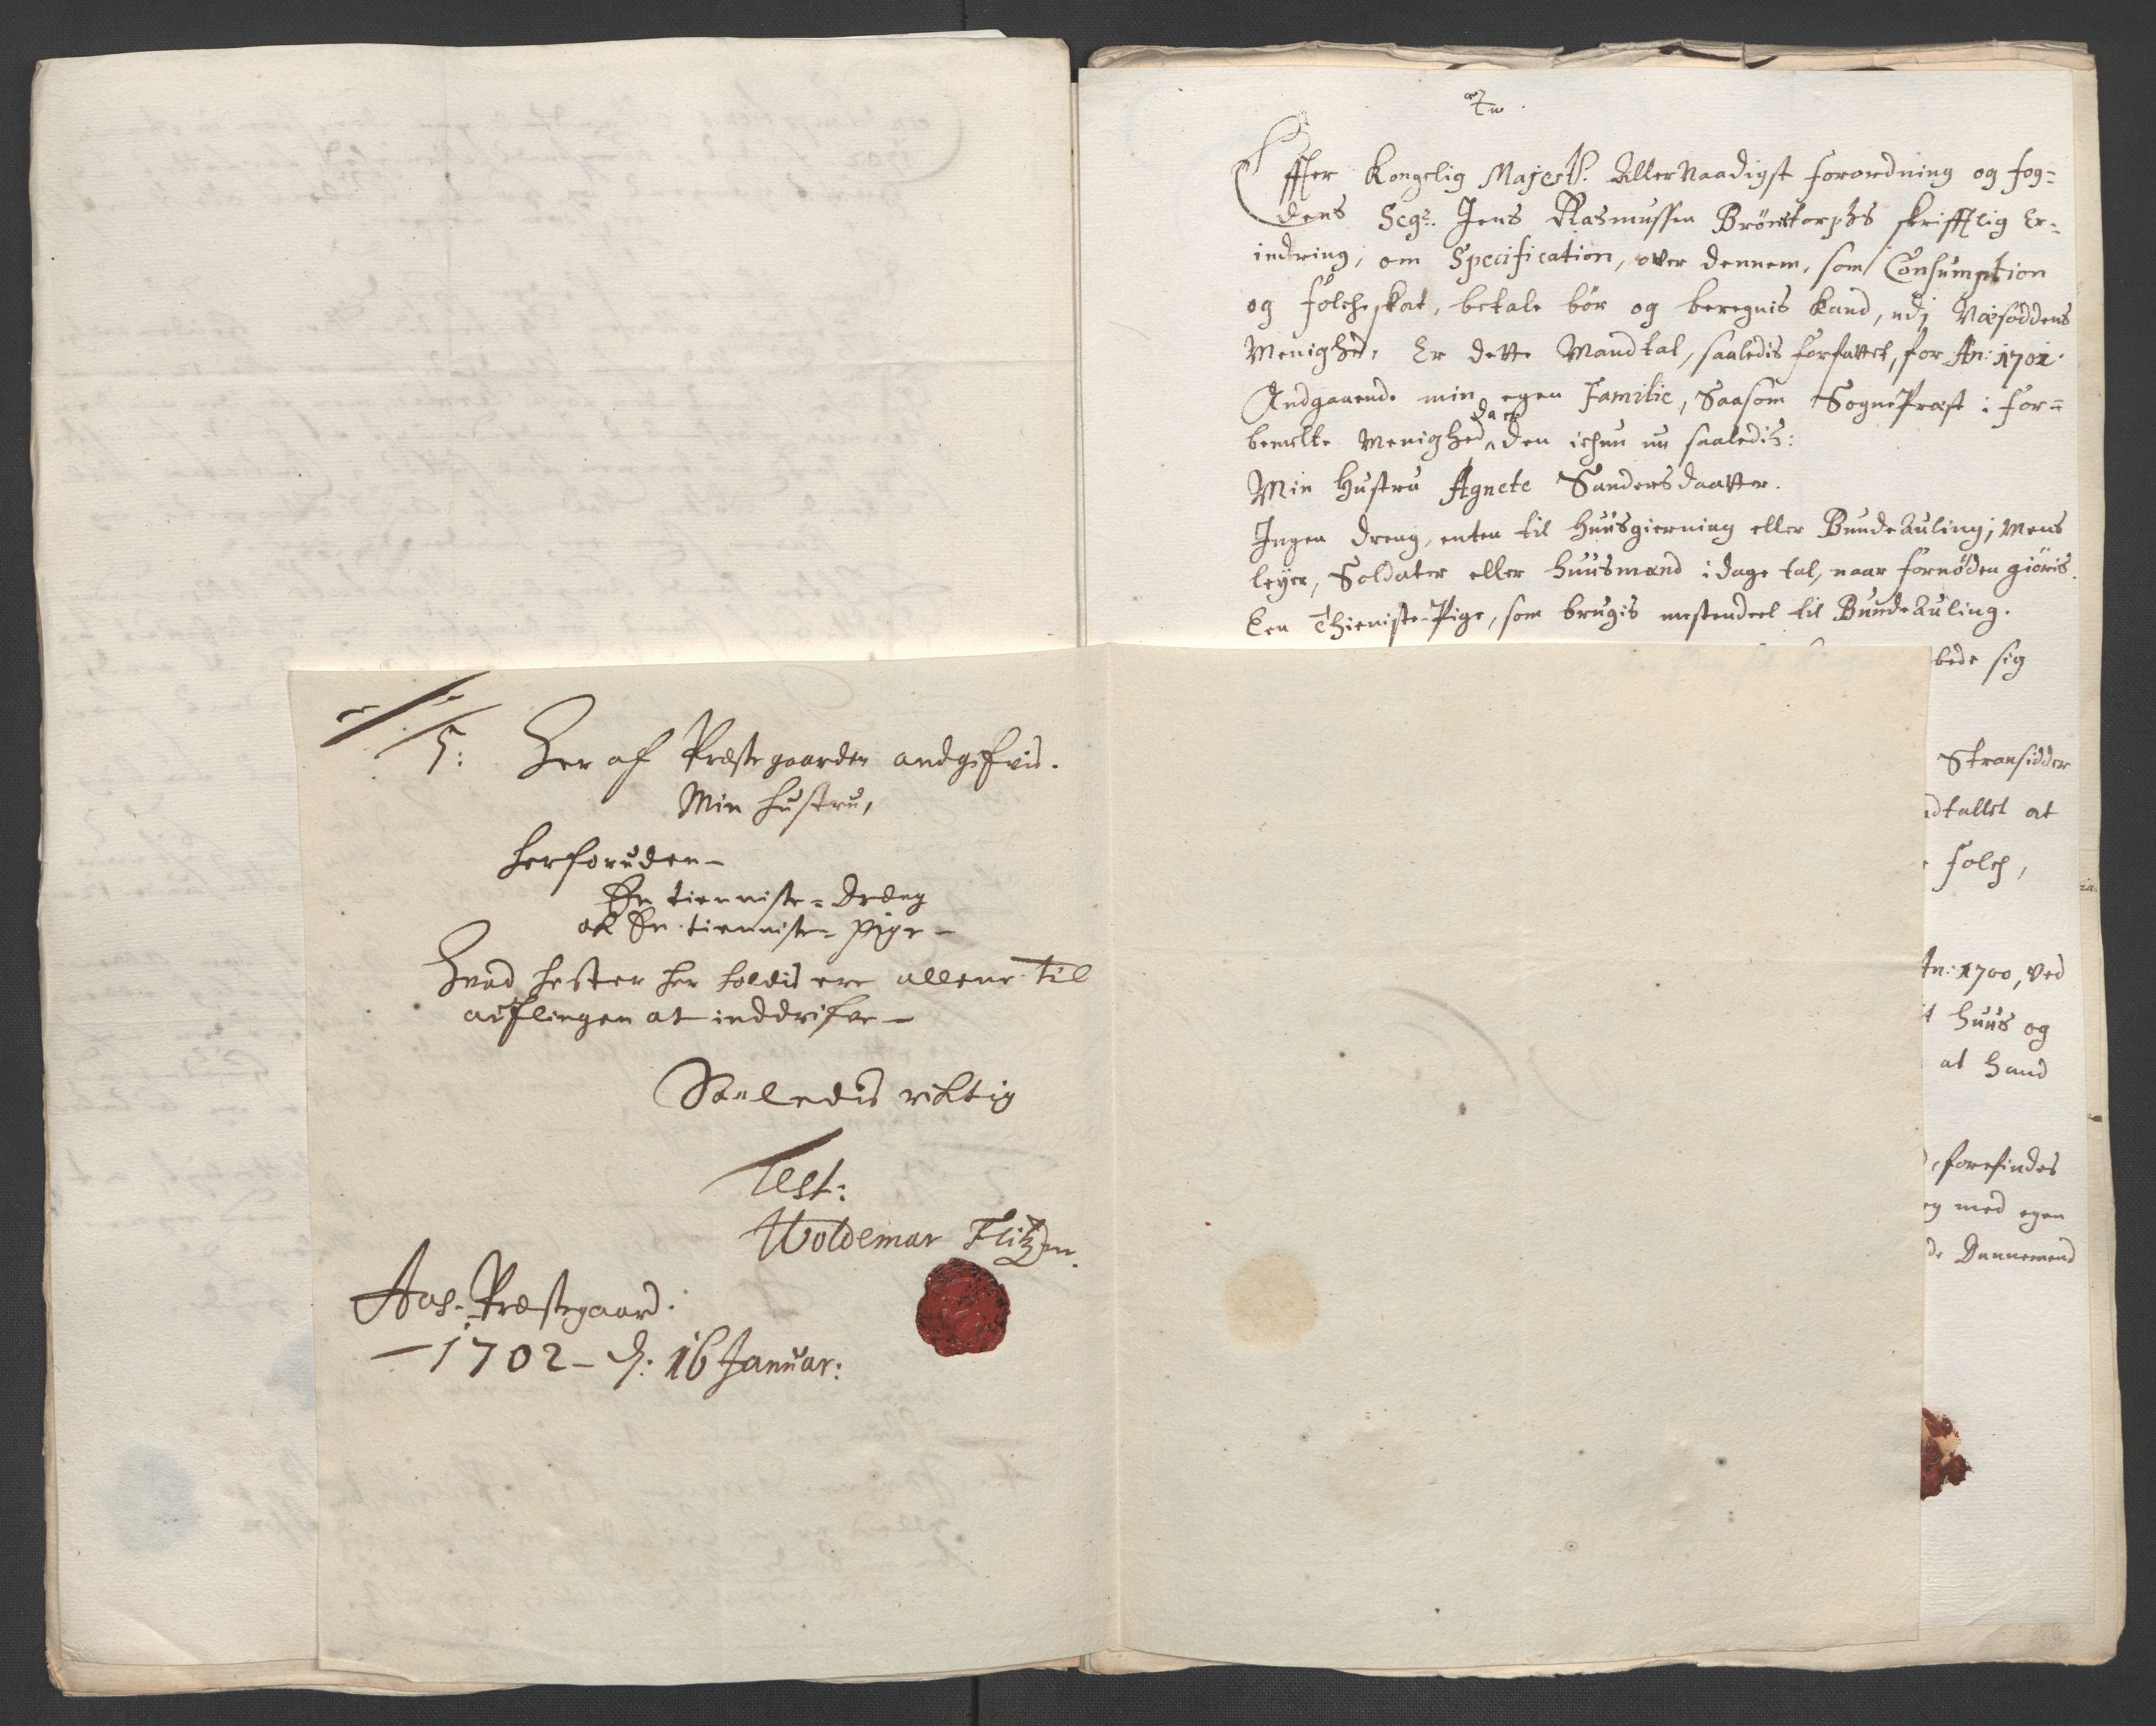 Effter Kongelig Majestt. Aller Naadigst forordning og fog=
dens Segr. Jens Rasmussen Brønstorphs skrifftlig Er=
indring, om Specification, over dennem, som Consumption
og folcheskat, betale bør og beregnis kand, udj Næsoddens
Menighed, Er dette Mandtal, saaledis forfattet, for An: 1701.
Andgaaende min egen Familie, Saasom SognePræst i for=
bemelte Menighed, da er den ichun nu saaledis:
Min Hustru Agnete Sandersdaatter.
Ingen dreng, enten til huusgierning eller BundeAuling; Mens
leyer, Soldater eller huusmænd i dage tal, naar fornøden giøris.
Een Thieniste-Pige, som brugis mestendeel til BundeAuling.
bede sig
Stransidder
dtallet at
folch,
An: 1700, ved
it huus og
at hand
forefindes
og med egen
de Dannemend
5: Her af Præstegaarden andgifvis.
Min hustru,
herforuden –
En tienniste=dreng
ok En tienniste=pige –
Hvad hester her holdis ere allene til
auflingen at inddrifve –
Saaledis riktig
Test:
Woldemar Flitzen.
Aas-Præstegaard.
– 1702 – d: 16 Januar: